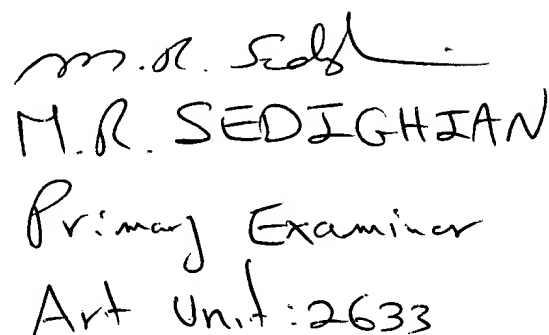 M.R. Sedighian
M.R. SEDIGHIAN
Primary Examiner
Art Unit: 2633